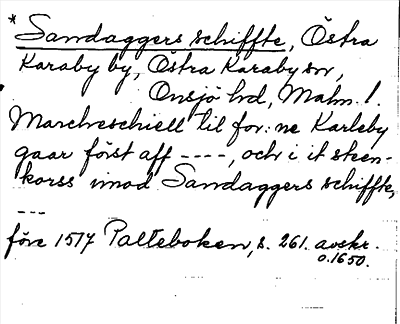 * Sandaggers schiffte, Östra
Karaby by, Östra Karaby sn,
Onsjö hd, Malm. l.
Marcheschiell til for: ne Karleby
gaar först aff ----, och i it steen-
korss imod Sandaggers schiffte,
---
före 1517 Palteboken, s. 261. avskr.
o. 1650.